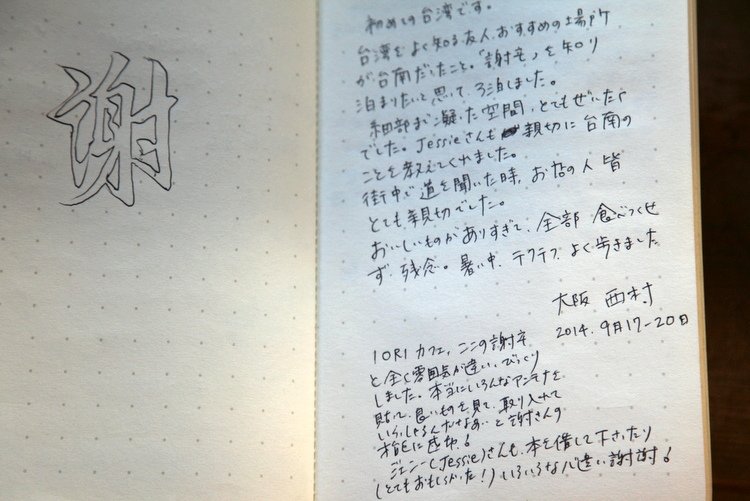 謝
初めての台湾です。
台湾をよく知る友人おすすめの場所
が台南だったこと。「謝宅」を知り
泊まりたいと思って、3泊しました。
細部まで凝った空間、とてもぜいたく
でした。Jessieさんも親切に台南の
ことを教えてくれました。
街中で道を聞いた時、お店の人皆
とても親切でした。
おいしいものがありすぎて、全部食べつくせ
ず残念。暑い中、テクテクよく歩きました
大阪 西村
2014.9月17-20日
IORIカフェ、ここの謝宅
と全く雰囲気が違い、びっくり
しました。本当にいろんなアンテナを
貼って、良いものを見て、取り入れて
いらっしゃるんだなあと謝さんの
才能に感動!
ジェシー(Jessie)さんも、本を借して下さったり
(とてもおもしろかった!)いろいろな心遣い謝謝!